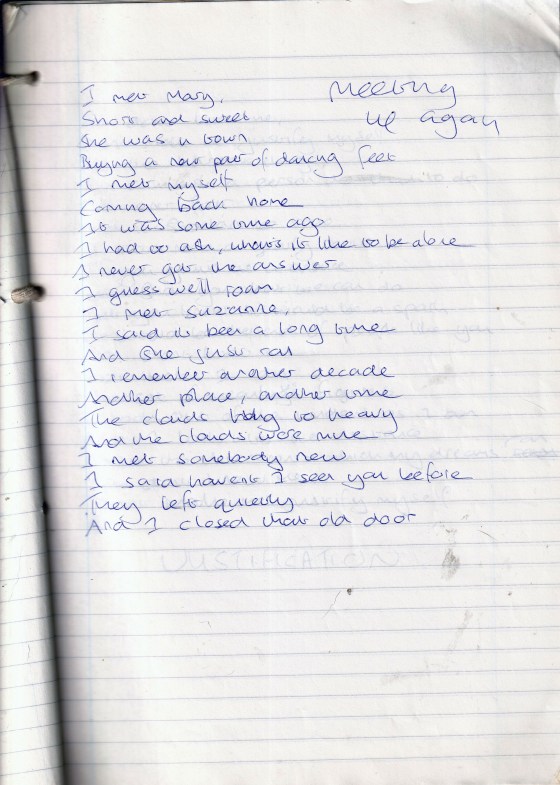 Meeting
me again
I met Mary,
Short and sweet
She was in town
Buying a new pair of dancing feet
I met myself
Coming back home
It was some time ago
I had to ask, what's it like to be alone
I never got the answer
I guess we'll roam
I met Suzanne,
I said it been a long time
And she just ran
I remember another decade
Another place, another time
The clouds hung to heavy
And the clouds were mine
I met somebody new
I said havent I seen you before
They left quietly
And I closed that old door
JUSTIFICATION